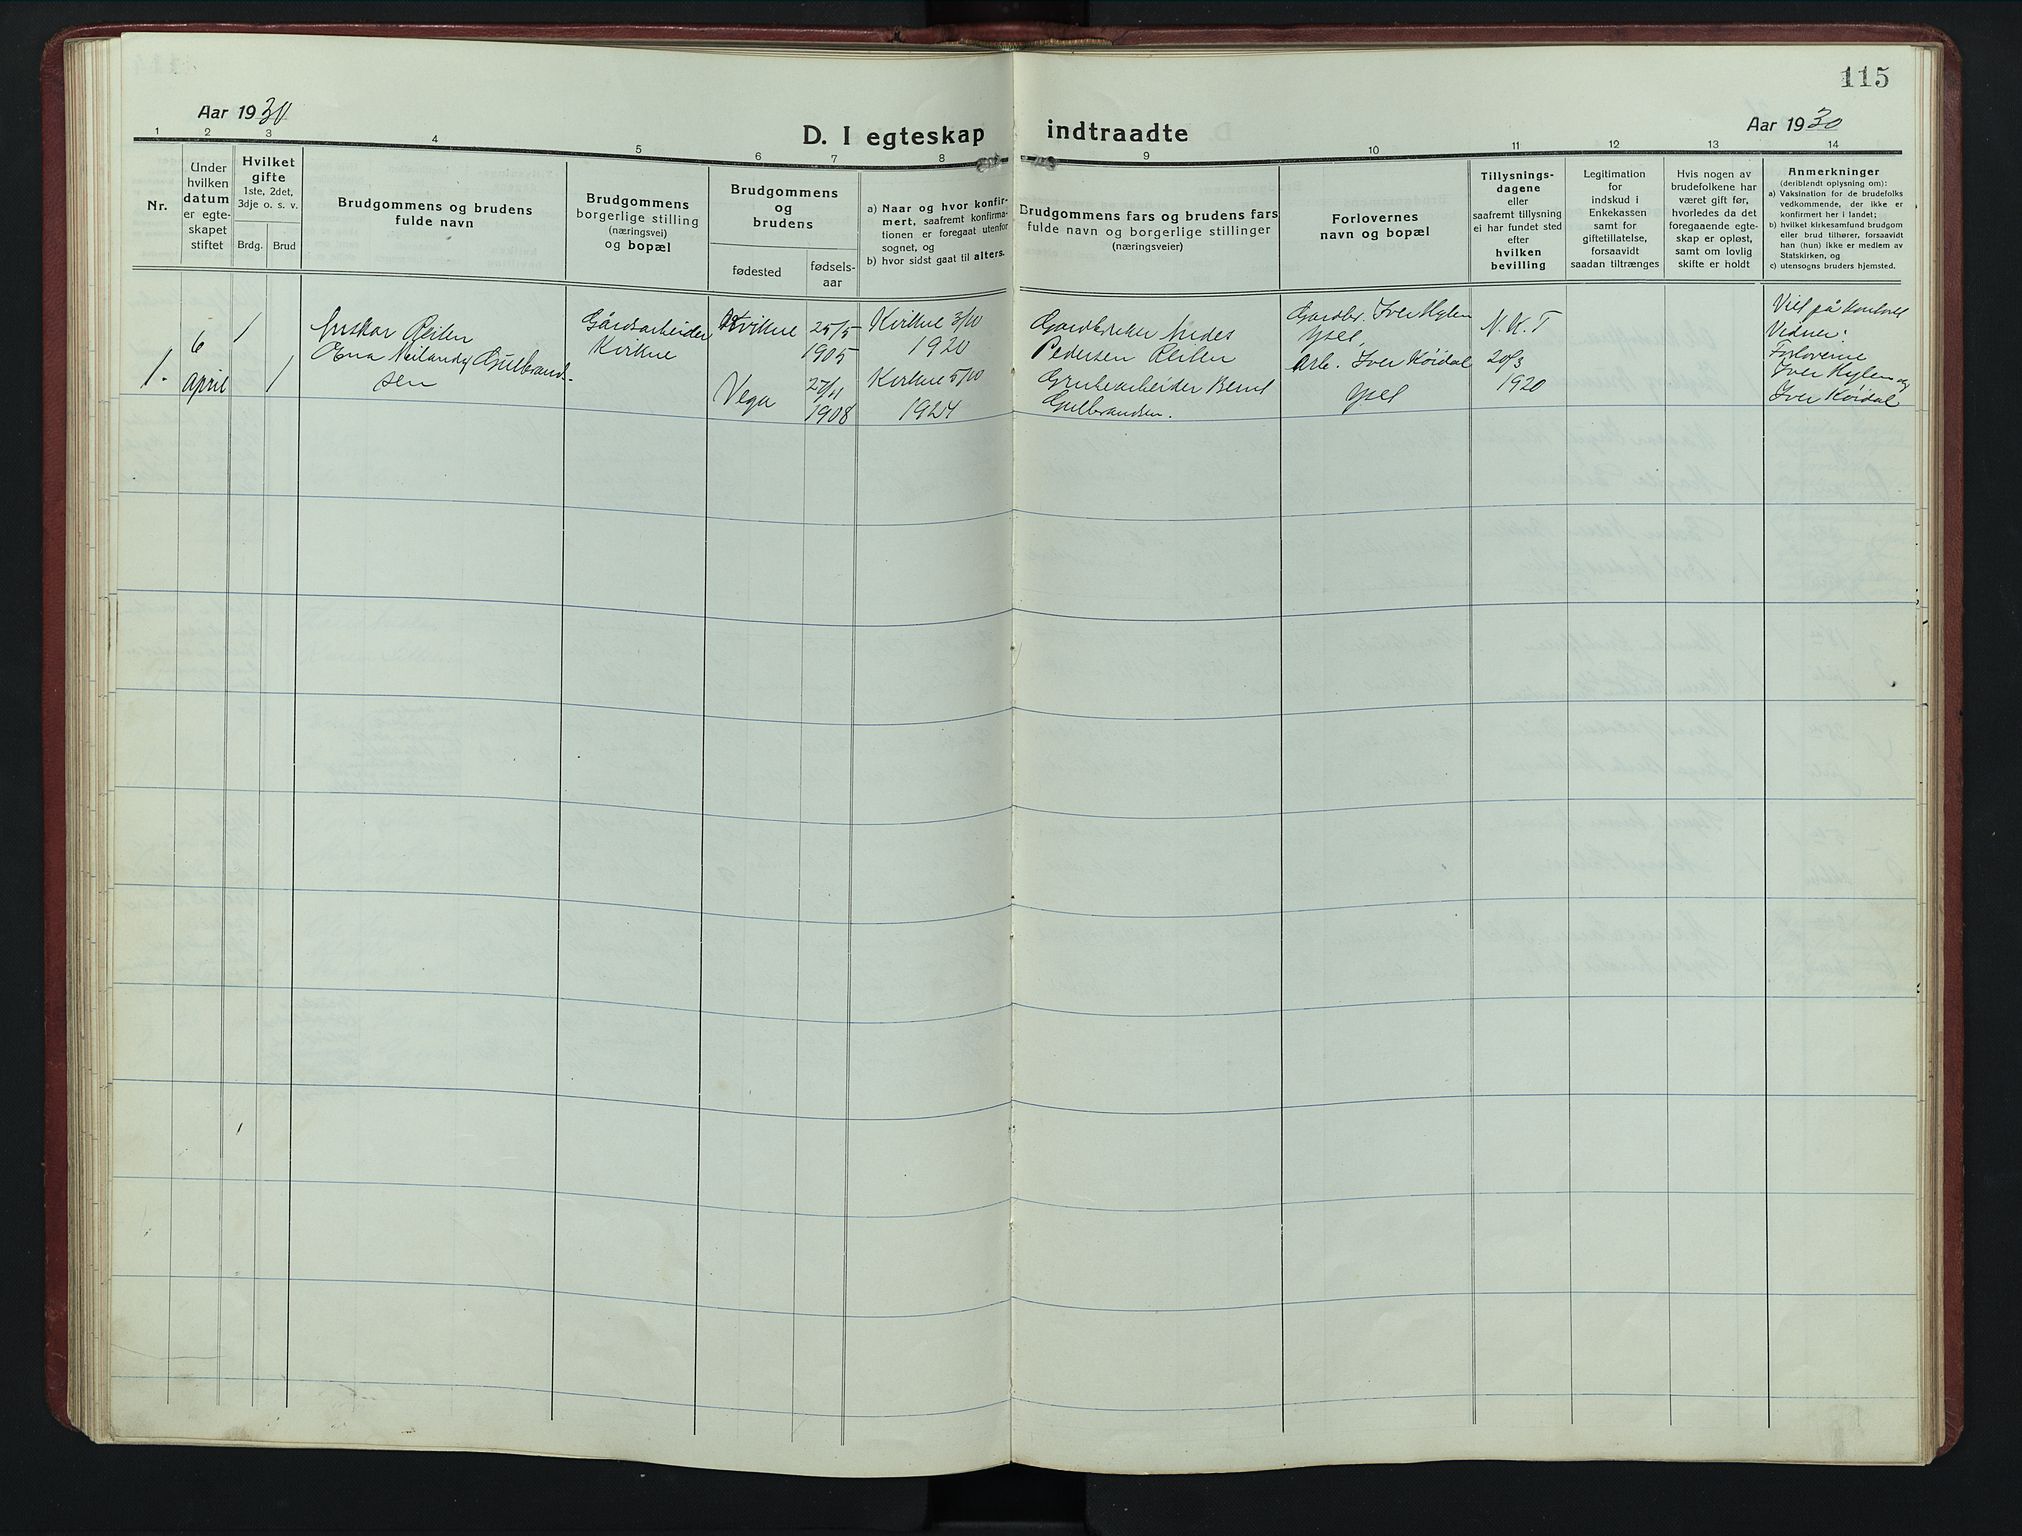 115
Aar 1930
D. I egteskap indtraadte
Aar 1930
1 2 3 4 5 6 7 8 9 10 11 12 13 14
Nr.
Under
hvilken
datum
er egte-
skapet
stiftet
Hvilket
gifte
1ste, 2det,
3dje o. s. v.
Brdg. Brud
Brudgommens og brudens
fulde navn
Brudgommens
borgerlige stilling
(næringsvei)
og bopæl
Brudgommens
og
brudens
fødested
fødsels-
aar
a) Naar og hvor konfir-
mert, saafremt konfirma-
tionen er foregaat utenfor
sognet, og
b) hvor sidst gaat til alters.
Brudgommens fars og brudens fars
fulde navn og borgerlige stillinger
(næringsveier)
Forlovernes
navn og bopæl
Tillysnings-
dagene
eller
saafremt tillysning
ei har fundet sted
efter
hvilken
bevilling
Legitimation
for
indskud i
Enkekassen
samt for
giftetillatelse,
forsaavidt
saadan tiltrænges
Hvis nogen av
brudefolkene har
været gift før,
hvorledes da det
foregaaende egte-
skap er opløst,
samt om lovlig
skifte er holdt
Anmerkninger
(deriblandt oplysning om):
a) Vaksination for de brudefolks
vedkommende, der ikke er
konfirmert her i landet;
b) hvilket kirkesamfund brudgom
eller brud tilhører, forsaavidt
han (hun) ikke er medlem av
Statskirken, og
c) utensogns bruders hjemsted.
1.
6
april
1
1
Reilen
Gulbrand-
sen
Gårdsarbeider
Kvikne
Kvikne
25/5
1905
Vega
27/11
1908
Kvikne 3/10
1920
Kvikne 5/10
1924
Gardbruker
Pedersen Reilen
Grubearbeider Bernt
Gulbrandsen.
Gardbr. Iver Hylen
Yset
Arb. Iver Köidal
Yset
N.K.T
20/3
1920
Viet på kontoret
Vidner:
Forloverne
Iver Hylen og
Iver Köidal